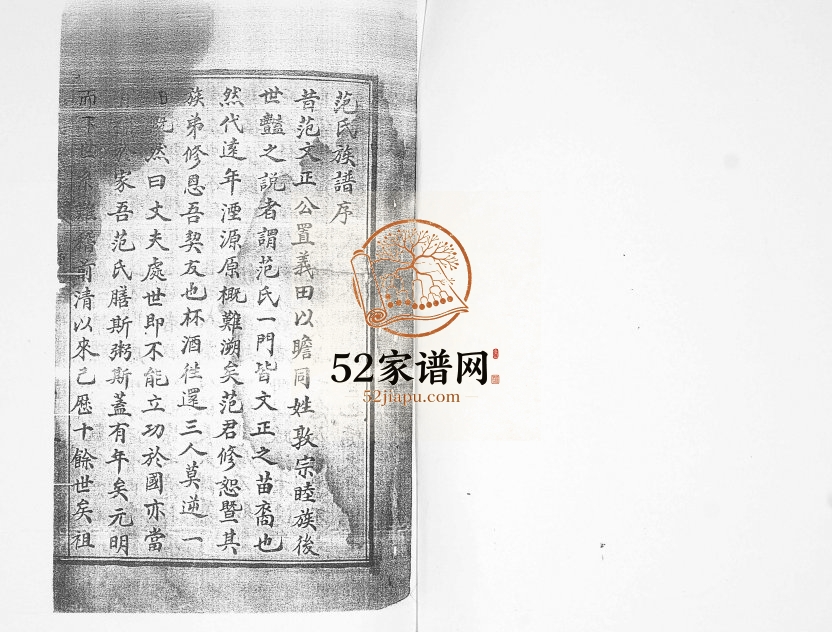 范氏族譜序
昔范文正公置義田以瞻同姓敦宗睦族後
世豔之説者謂范氏一門皆文正之苗裔也
然代遠年湮源原概難溯矣范君修恕暨其
族弟修恩吾契友也杯酒往還三人莫逆一
日慨然曰丈夫處世即不能立功於國亦當
家吾范氏膳斯粥斯蓋有年矣元明
而下世系難稽前清以來已歷十餘世矣祖
52家谱网
52jiapu.com